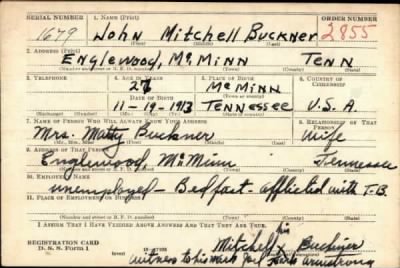 SERIAL NUMBER 1. NAME (Print) ORDER NUMBER
1679 John Mitchell Buckner 2855
(First) (Middle) (Last)
2. ADDRESS (Print)
Englewood, McMinn Tenn
(Number and street or R. F. D. number) (Town) (County) (State)
3. TELEPHONE 4. AGE IN YEARS 5. PLACE OF BIRTH 6. COUNTRY OF CITIZENSHIP
26 McMinn
DATE OF BIRTH (Town or county)
11-19-1913 Tennessee U.S.A
(Exchange) (Number) (Mo.) (Day) (Yr.) (State or country)
7. NAME OF PERSON WHO WILL ALWAYS KNOW YOUR ADDRESS 8. RELATIONSHIP OF THAT PERSON
Mrs. Matty Buckner wife
(Mr., Mrs., Miss) (First) (Middle) (Last)
9. ADDRESS OF THAT PERSON
Englewood, McMinn Tennessee
(Number and street or R. F. D. number) (Town) (County) (State)
10. EMPLOYER'S NAME
unemployed - Bedfast - afflicted with T.B.
11. PLACE OF EMPLOYMENT OR BUSINESS
(Number and street or R. F. D. number) (Town) (County) (State)
I AFFIRM THAT I HAVE VERIFIED ABOVE ANSWERS AND THAT THEY ARE TRUE.
his
REGISTRATION CARD Mitchell x Buckner
D. S. S. Form 1 witness to his mark Armstrong